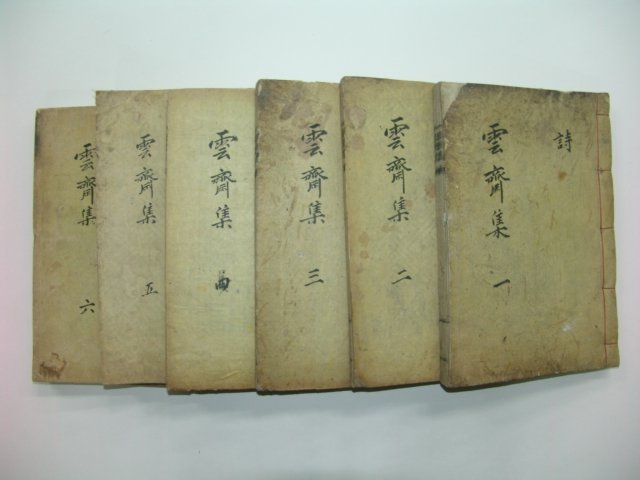 詩
雲齋集 一
雲齋集 二
雲齋集 三
雲齋集 四
雲齋集 五
雲齋集 六